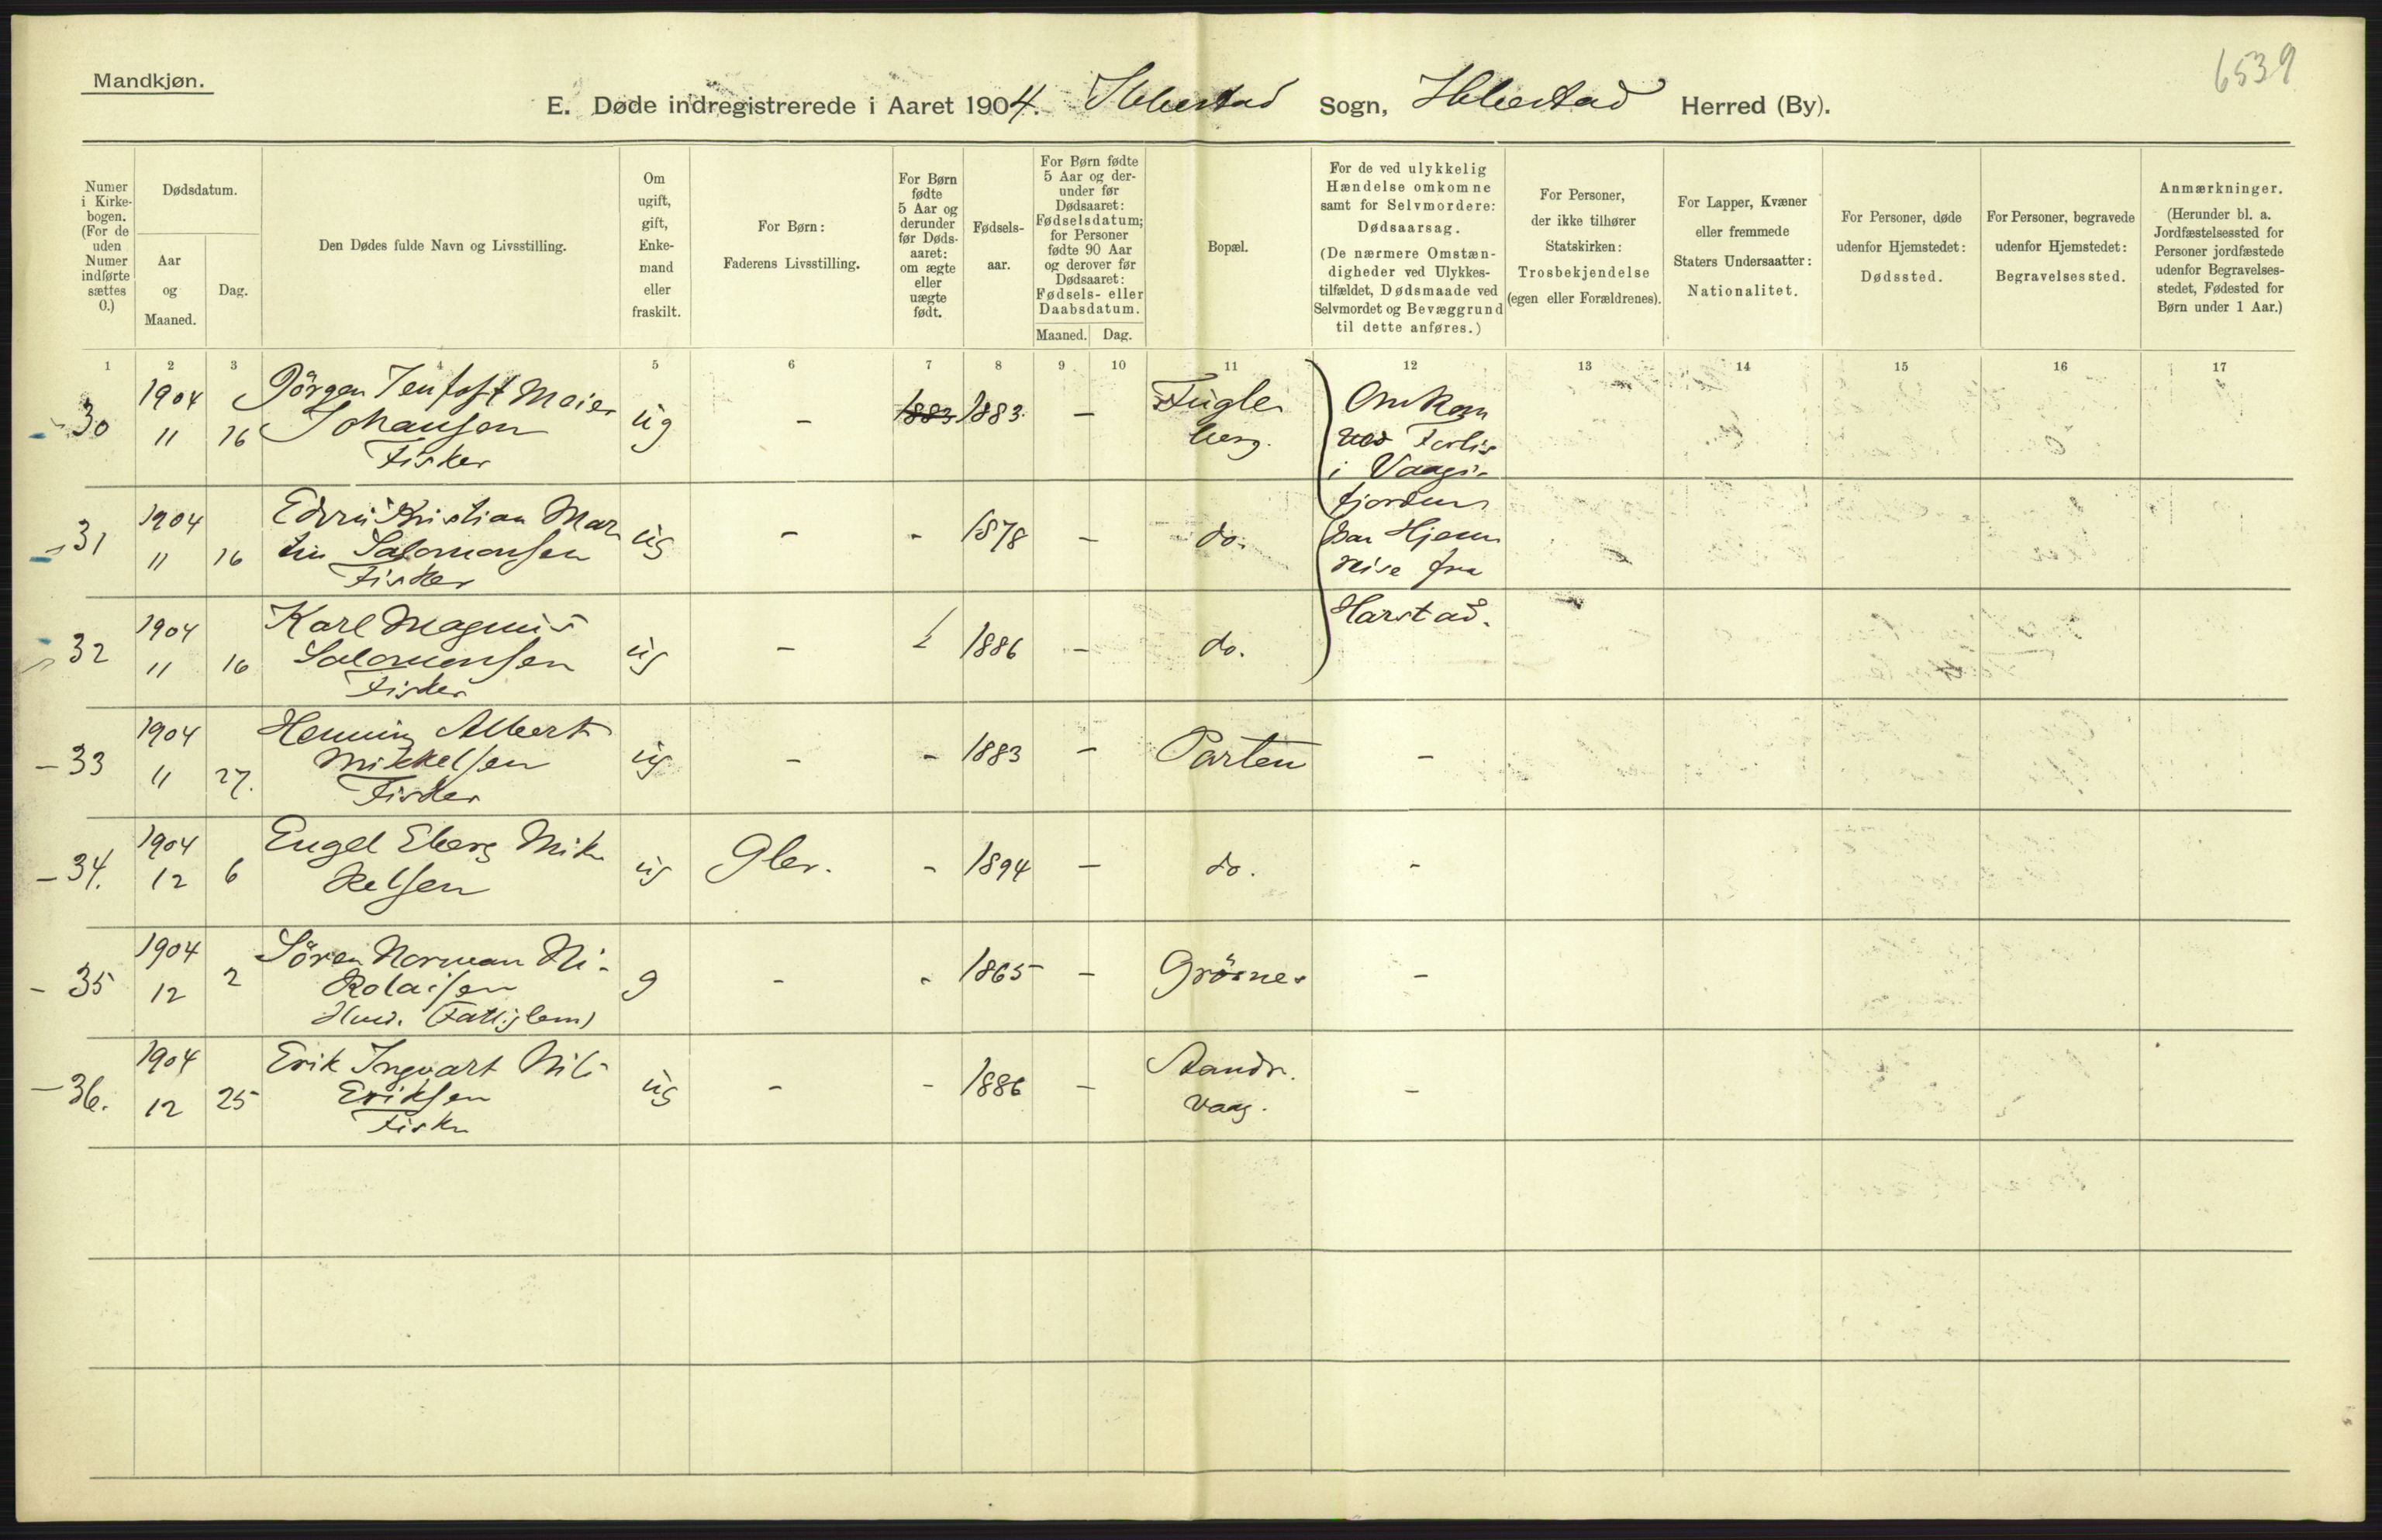 Mandkjøn.
6539
E. Døde indregistrerede i Aaret 1904. Ibbestad Sogn, Ibbestad Herred (By).
Numer i Kirkebogen. (For de uden Numer indførte sættes 0.)
Dødsdatum.
Aar og Maaned.
Dag.
Den Dødes fulde Navn og Livsstilling.
Om ugift, gift, Enkemand eller fraskilt.
For Børn: Faderens Livsstilling.
For Børn fødte 5 Aar og derunder før Dødsaaret: om ægte eller uægte født.
Fødselsaar.
For Børn fødte 5 Aar og derunder før Dødsaaret: Fødselsdatum; for Personer fødte 90 Aar og derover før Dødsaaret: Fødsels- eller Daabsdatum.
Maaned. Dag.
Bopæl.
For de ved ulykkelig Hændelse omkomne samt for Selvmordere: Dødsaarsag. (De nærmere Omstændigheder ved Ulykkestilfældet, Dødsmaade ved Selvmordet og Bevæggrund til dette anføres.)
For Personer, der ikke tilhører Statskirken: Trosbekjendelse (egen eller Forældrenes).
For Lapper, Kvæner eller fremmede Staters Undersaatter: Nationalitet.
For Personer, døde udenfor Hjemstedet: Dødssted.
For Personer, begravede udenfor Hjemstedet: Begravelsessted.
Anmærkninger. (Herunder bl. a. Jordfæstelsessted for Personer jordfæstede udenfor Begravelsesstedet, Fødested for Børn under 1 Aar.)
1 2 3 4 5 6 7 8 9 10 11 12 13 14 15 16 17
30 1904 11 16 Jörgen Tentoft Meier Johansen Fisker ug - 1883 1883. - Fugleberg.
Omkom ved Forlis i Vaagsfjorden paa Hjemreise fra Harstad.
31 1904 11 16 Edvin Kristian Martin Salomonsen Fisker ug - - 1878 - do.
32 1904 11 16 Karl Magnus Salomonsen Fisker ug - 1886 - do.
33 1904 11 27. Henning Albert Mikkelsen Fisker ug - - 1883 - Parten -
34. 1904 12 6 Engel Eberg Mikkelsen ug Gbr. - 1894 - do. -
35 1904 12 2 Sören Norman Nikolaisen (Fattiglem) g - - 1865 - Grösnes -
36. 1904 12 25 Erik Ingvart Nils Eriksen Fisker ug - - 1886 - Sandvaag. -